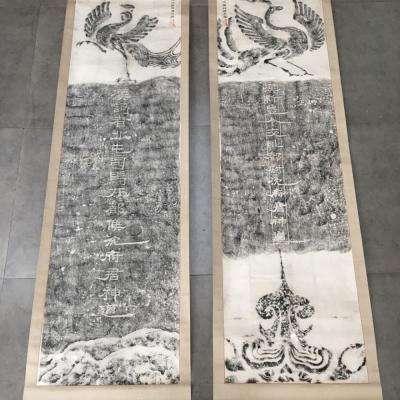 漢新豐令交趾都尉沈府君神道
漢謁者北屯司馬左都候沈府君神道